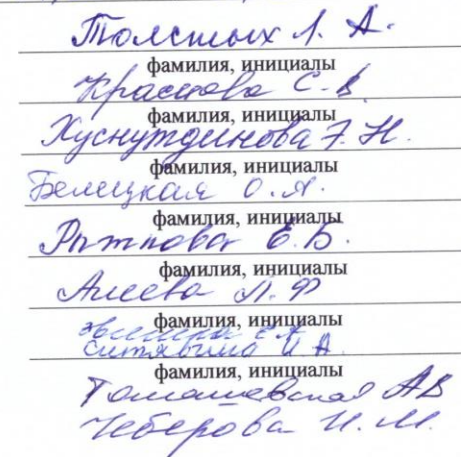 Толстых Л. А.
фамилия, инициалы
Краснова С. В.
фамилия, инициалы
Хуснутдинова Э. Н.
фамилия, инициалы
Белецкая О. А.
фамилия, инициалы
Рыжкова Е. Б.
фамилия, инициалы
Алеева Л. Ф
фамилия, инициалы
Ситявина И. А.
фамилия, инициалы
Томашевская АВ
Чеберова И. М.